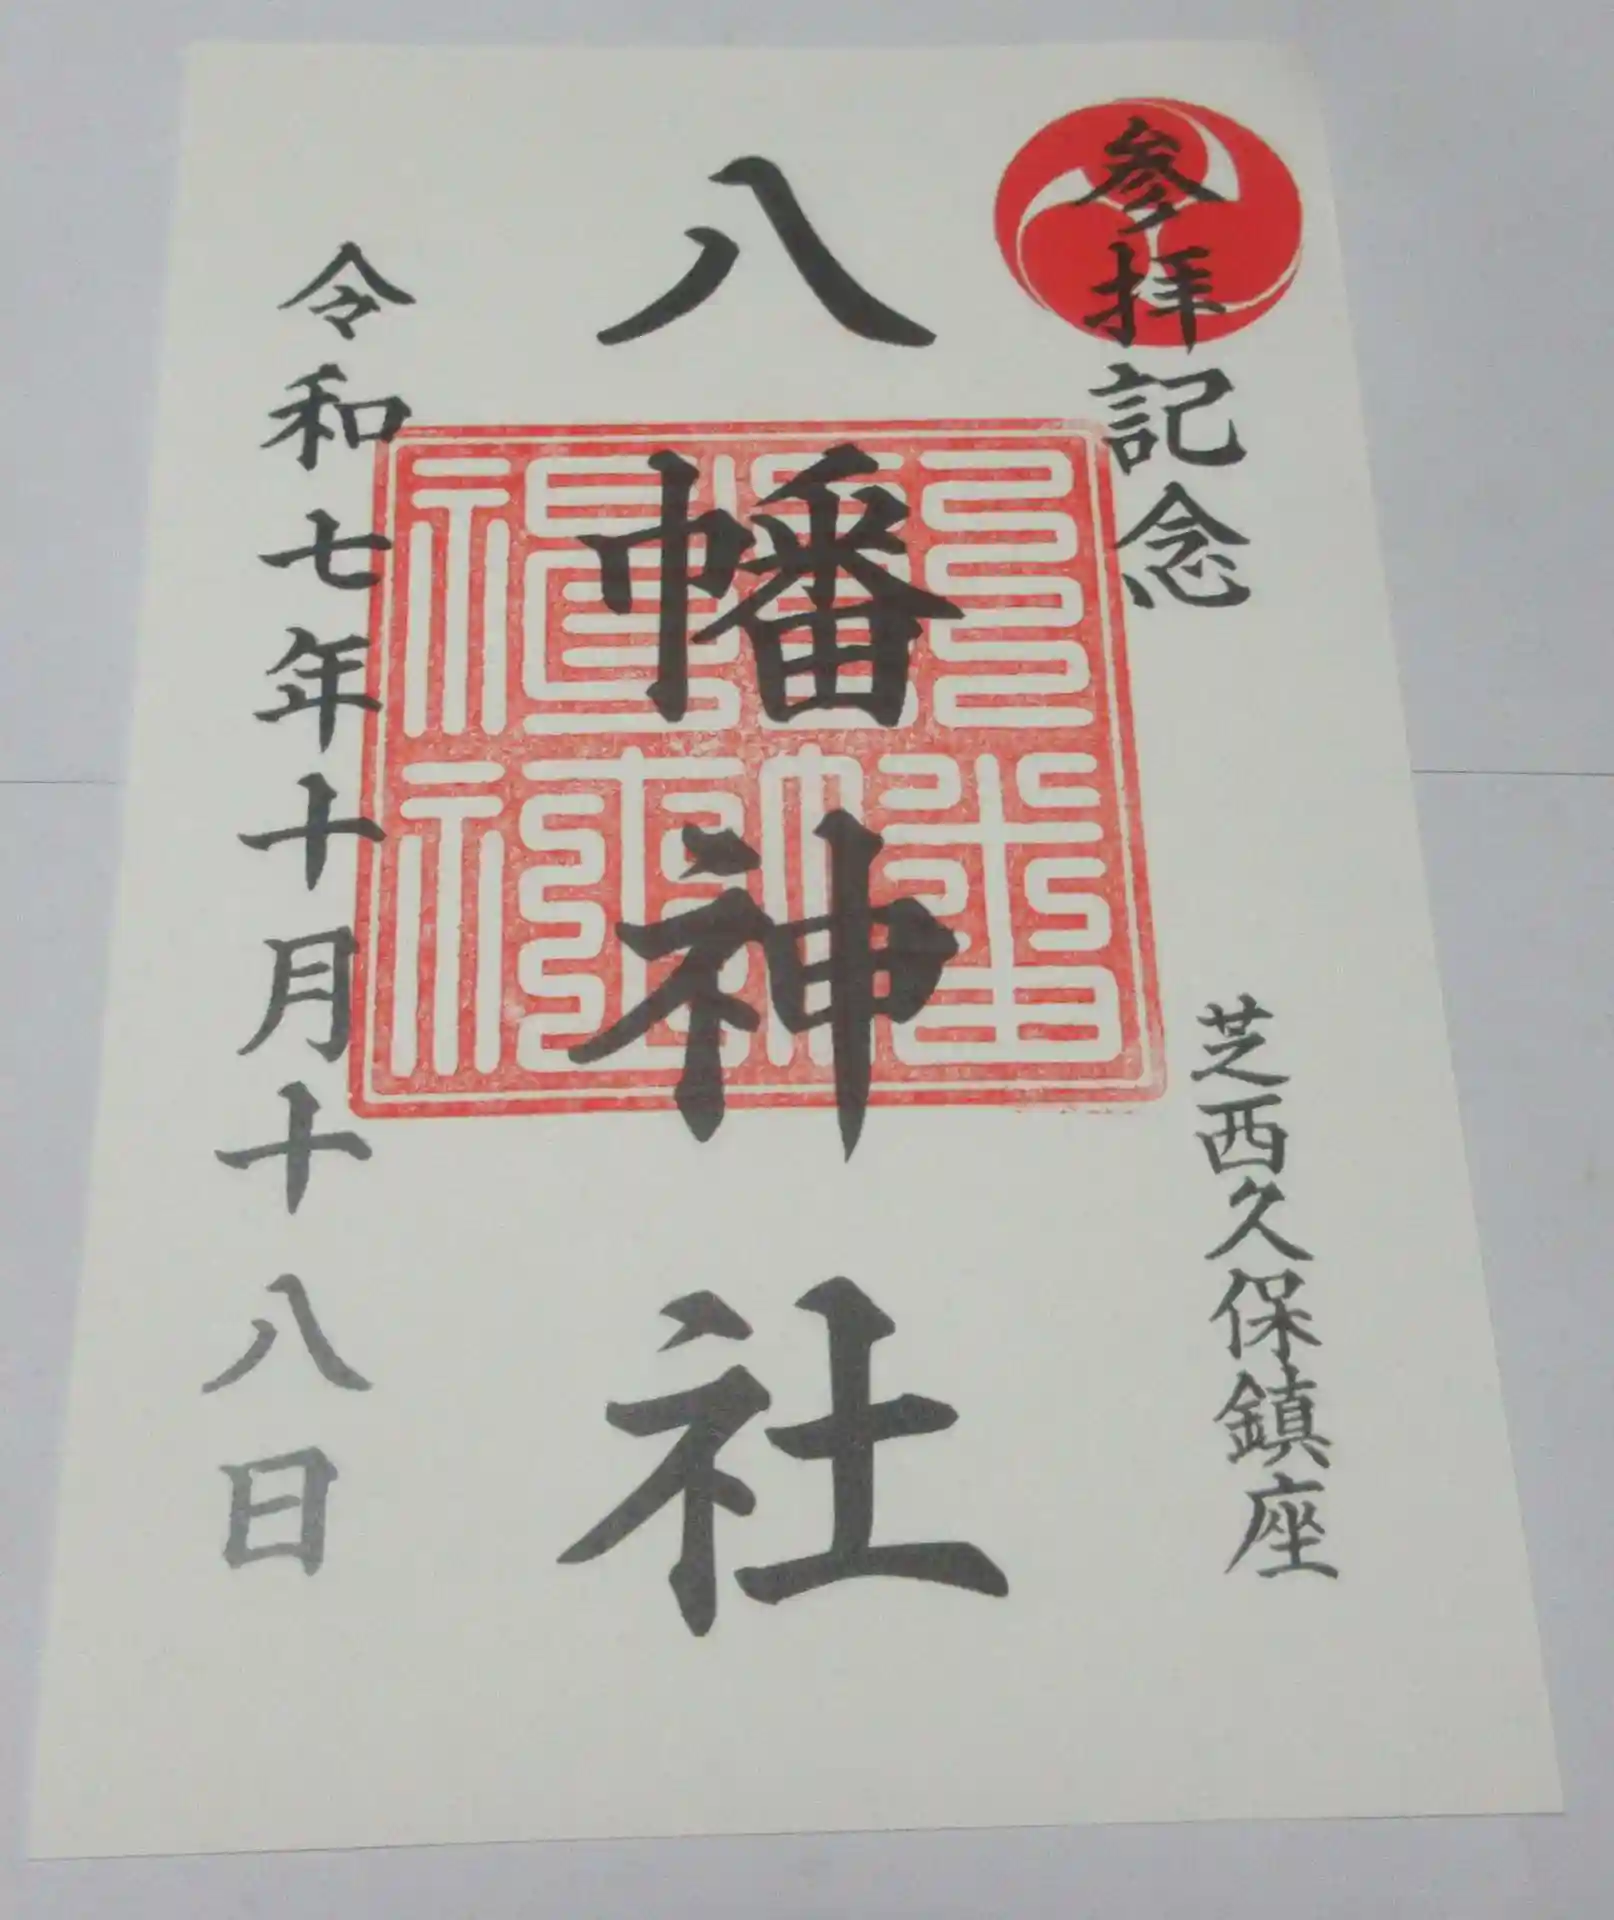 参拝記念
芝西久保鎮座
八幡神社
令和七年十月十八日